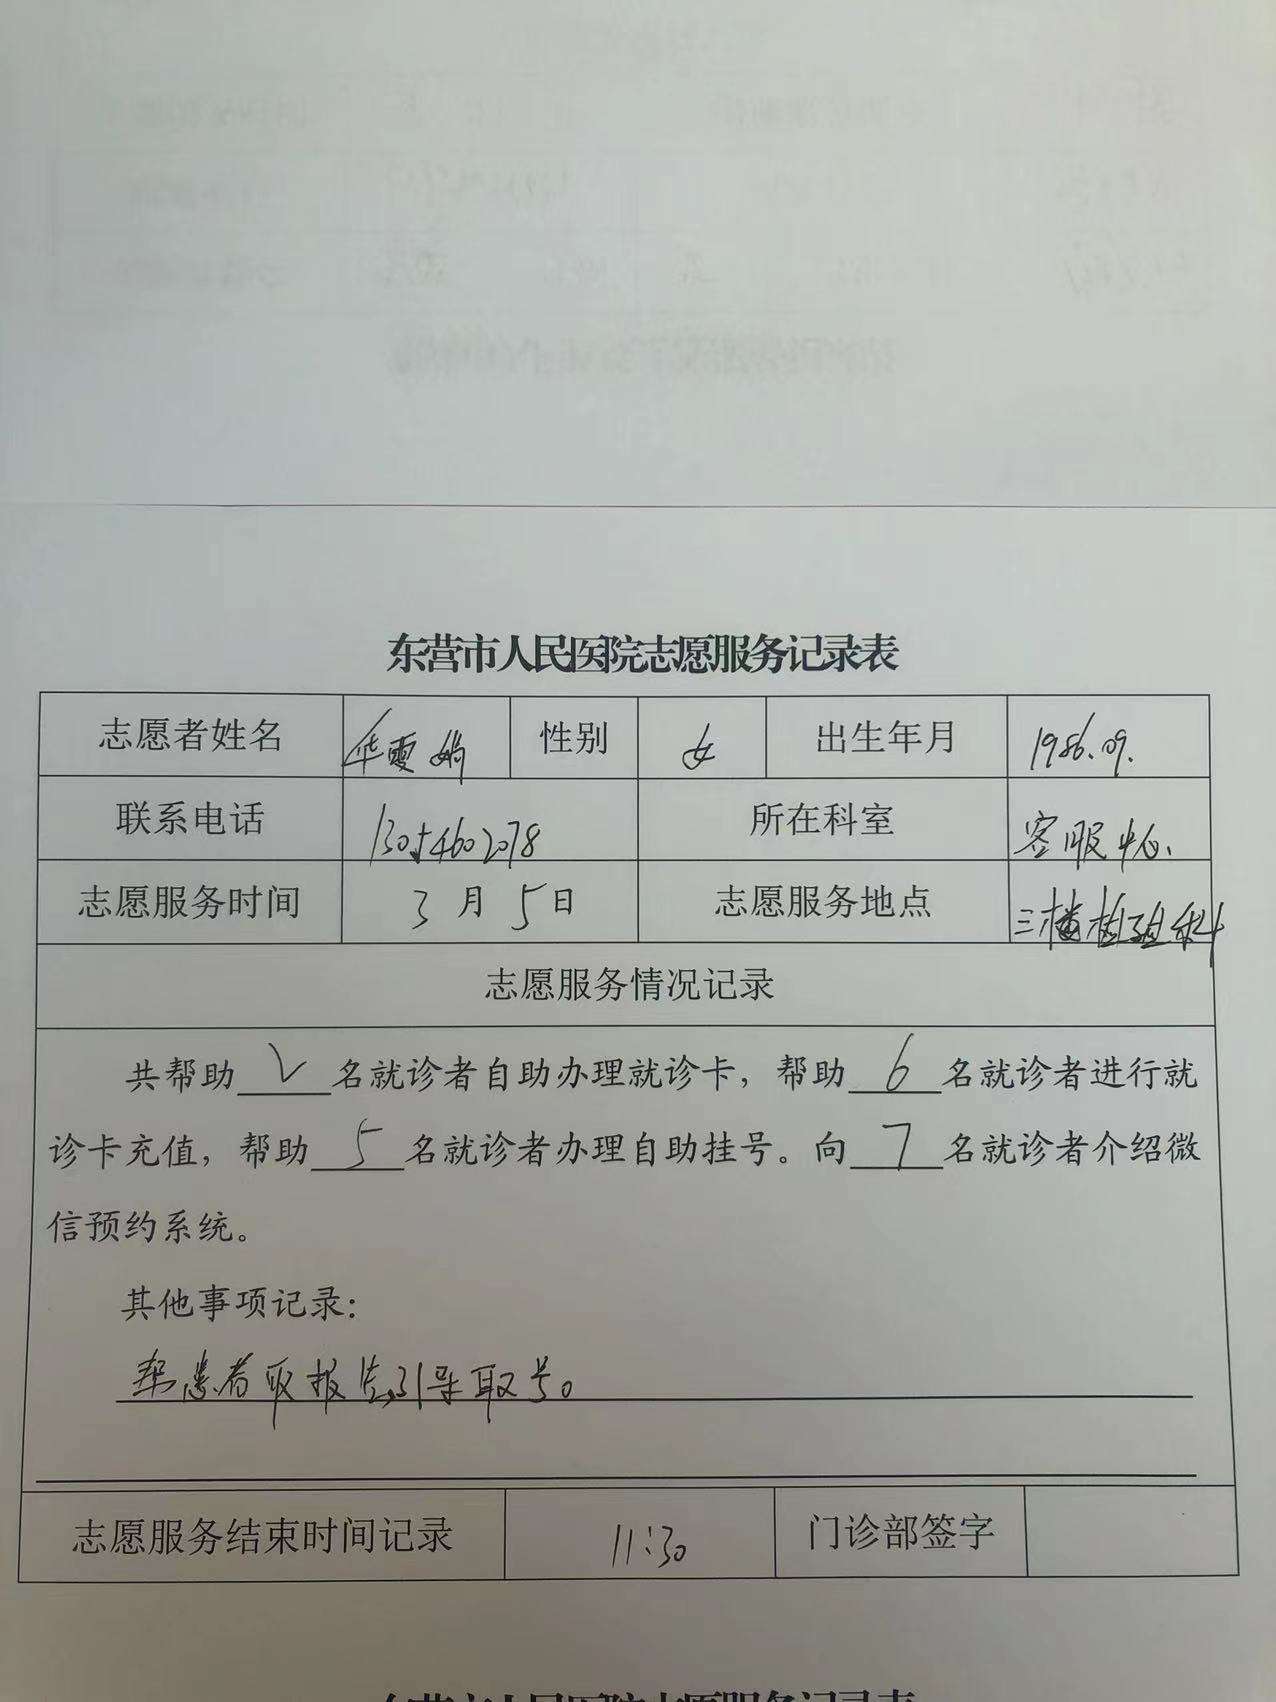 东营市人民医院志愿服务记录表
志愿者姓名 华 性别 女 出生年月 1986.09.
联系电话 13054602078 所在科室 客服中心.
志愿服务时间 3月5日 志愿服务地点 三楼检验科
志愿服务情况记录
共帮助 2 名就诊者自助办理就诊卡，帮助 6 名就诊者进行就
诊卡充值，帮助 5 名就诊者办理自助挂号。向 7 名就诊者介绍微
信预约系统。
其他事项记录：
帮患者取报告,引导取号。
志愿服务结束时间记录 11:30 门诊部签字
东营市人民医院志愿服务记录表